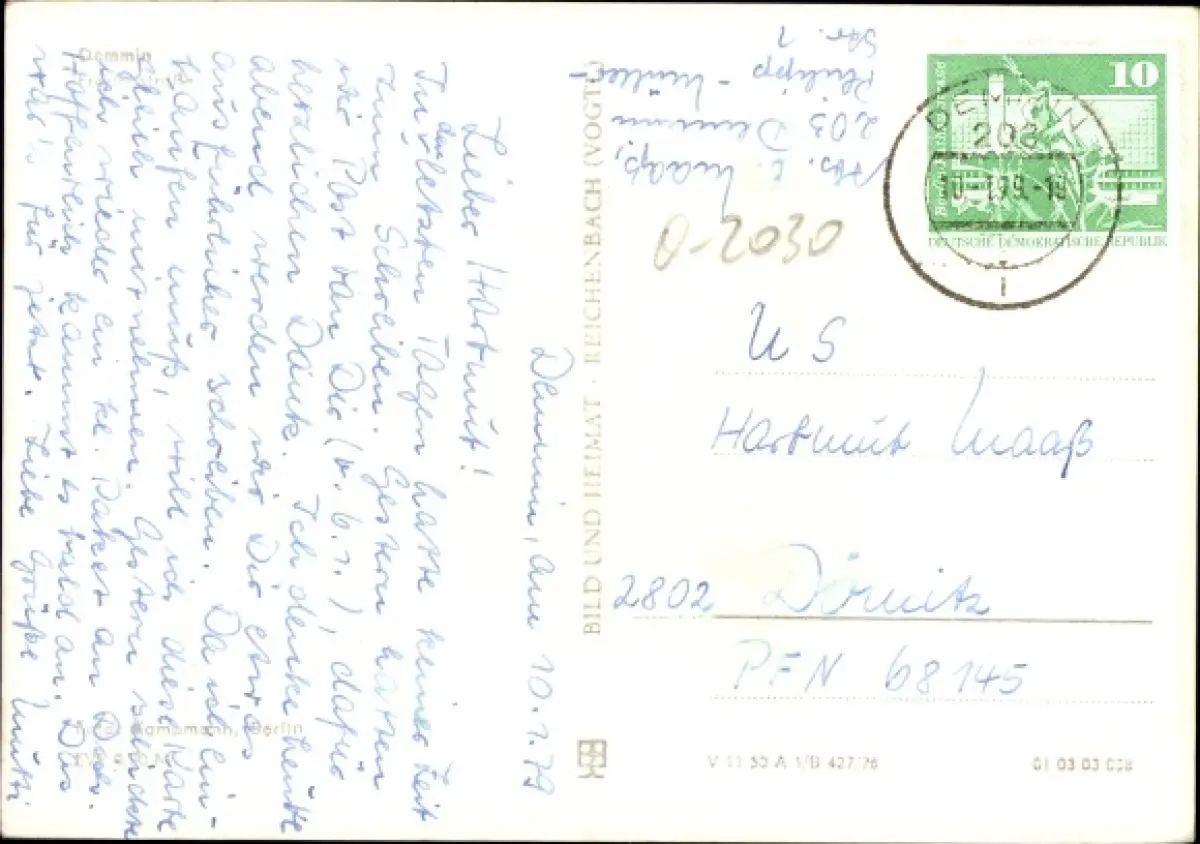 Demmin
Demmin, am 10.1.79
Lieber Hartmut!
In den letzten Tagen hatte keiner Zeit
zum Schreiben. Gestern hatten
wir Post von Dir (v. 6.1.), dafür
herzlichen Dank. Ich denke heute
abend werden wir Dir etwas
ausführlicher schreiben. Da ich ein-
kaufen muß, will ich diese Karte
gleich mitnehmen. Gestern schickte
ich wieder ein kl. Paket an Dich.
Hoffentlich kommt es bald an. Das
wär's für jetzt. Liebe Grüße Mutti
Foto: Kampmann, Berlin
BILD UND HEIMAT · REICHENBACH (VOGTL)
Abs. E. Maaß,
203 Demmin
Philipp-Müller-
Str. 1
O-2030
10
DEUTSCHE DEMOKRATISCHE REPUBLIK
DEMMIN
203
10.-1.79.-18
US
Hartmut Maaß
2802 Dömitz
PFN 68145
V 11 50 A 1/B 427/76
01 03 03 008